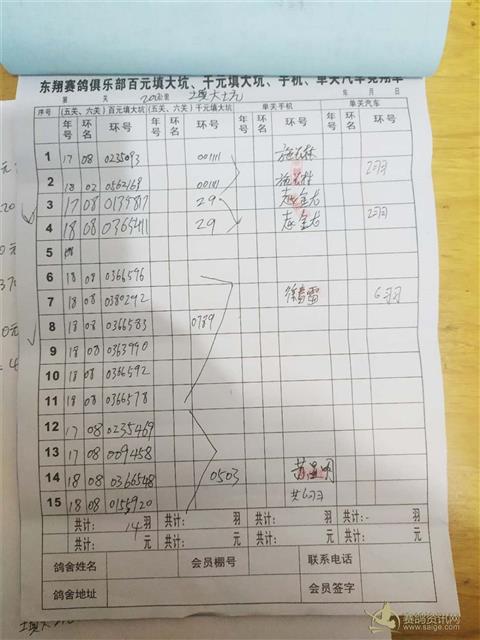 东翔赛鸽俱乐部百元填大坑、千元填大坑、手机、单关汽车竞翔单
第 关 200公里 填大坑 年 月 日
序号 (五关、六关)百元填大坑 (五关、六关)千元填大坑 单关手机 单关汽车
年号 环名 环号 年号 环名 环号 年号 环名 环号 年号 环名 环号
1 17 08 0235093 00111
2 18 02 0562169 00111 2羽
3 17 08 29 赵金龙
4 18 08 0365411 29 赵金龙 2羽
5 18
6 18 08 0366596
7 18 08 0380292 6羽
8 18 08 0366583 0789
9 18 08 0363990
10 18 08 0366592
11 18 08 0366578
12 17 08 0235469
13 17 08 009458
14 18 08 0366548 0503
15 18 08 0155920 共6羽
共计: 14 羽 共计: 羽 共计: 羽 共计: 羽
共计: 元 共计: 元 共计: 元 共计: 元
鸽舍姓名 会员棚号 联系电话
鸽舍地址 会员签字
赛鸽资讯网
www.saige.com